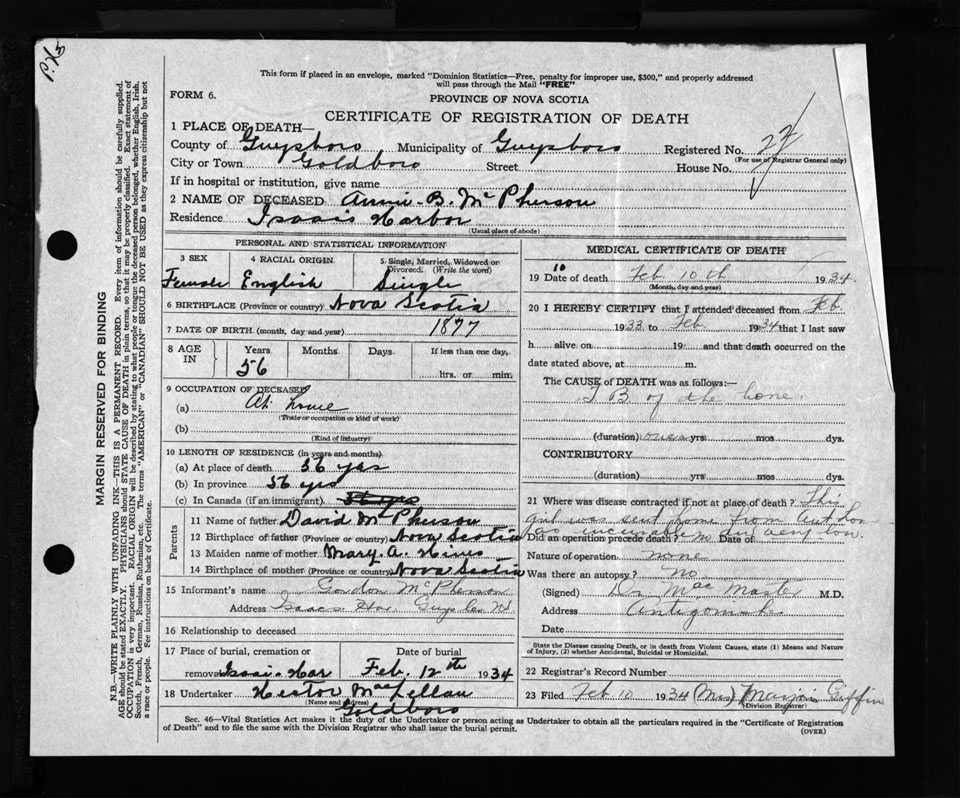 This form if placed in an envelope, marked "Dominion Statistics—Free, penalty for improper use, $300," and properly addressed
will pass through the Mail "FREE"
FORM 6.
PROVINCE OF NOVA SCOTIA
CERTIFICATE OF REGISTRATION OF DEATH
1 PLACE OF DEATH—
County of Guysboro Municipality of Guysboro Registered No.
(For use of Registrar General only)
City or Town Goldboro Street House No.
If in hospital or institution, give name
2 NAME OF DECEASED Annie B. McPherson
Residence Isaacs Harbor
(Usual place of abode)
PERSONAL AND STATISTICAL INFORMATION
3 SEX 4 RACIAL ORIGIN 5 Single, Married, Widowed or
Divorced. (Write the word)
Female English Single
6 BIRTHPLACE (Province or country) Nova Scotia
7 DATE OF BIRTH (month, day and year) 1877
8 AGE IN Years Months Days If less than one day,
56 hrs. or min.
9 OCCUPATION OF DECEASED
(a) At home
(Trade or occupation or kind of work)
(b)
(Kind of industry)
10 LENGTH OF RESIDENCE (in years and months)
(a) At place of death 56 yrs
(b) In province 56 yrs
(c) In Canada (if an immigrant) 56 yrs
Parents
11 Name of father David McPherson
12 Birthplace of father (Province or country) Nova Scotia
13 Maiden name of mother Mary A.
14 Birthplace of mother (Province or country) Nova Scotia
15 Informant's name Gordon McPherson
Address Isaacs Har. Guys Co N.S.
16 Relationship to deceased
17 Place of burial, cremation or Date of burial
removal Isaacs Har Feb. 12th 1934
18 Undertaker Hector MacLellan
(Name and address)
Goldboro
MEDICAL CERTIFICATE OF DEATH
19 Date of death Feb. 10th 1934
10
(Month, day and year)
20 I HEREBY CERTIFY that I attended deceased from Feb.
1933 to Feb. 1934 that I last saw
h alive on 19 and that death occurred on the
date stated above, at m.
The CAUSE of DEATH was as follows:—
T B of the bone.
(duration) yrs mos dys.
CONTRIBUTORY
(duration) yrs mos dys.
21 Where was disease contracted if not at place of death? This
girl was sent home from
as incurable very low.
Did an operation precede death? No Date of
Nature of operation none
Was there an autopsy? No
(Signed) Dr MacMaster M.D.
Address Antigonish
Date
State the Disease causing Death, or in death from Violent Causes, state (1) Means and Nature
of Injury, (2) whether Accidental, Suicidal or Homicidal.
22 Registrar's Record Number
23 Filed Feb 10 1934 (Mrs) Giffin
(Division Registrar)
Sec. 46—Vital Statistics Act makes it the duty of the Undertaker or person acting as Undertaker to obtain all the particulars required in the "Certificate of Registration
of Death" and to file the same with the Division Registrar who shall issue the burial permit.
(OVER)
MARGIN RESERVED FOR BINDING
N.B.—WRITE PLAINLY WITH UNFADING INK—THIS IS A PERMANENT RECORD. Every item of information should be carefully supplied.
AGE should be stated EXACTLY. PHYSICIANS should STATE CAUSE OF DEATH in plain terms, so that it may be properly classified. Exact statement of
OCCUPATION is very important. RACIAL ORIGIN will be described by stating to what people or tongue the deceased person belonged, whether English, Irish,
Scotch, French, German, Russian, Ruthenian, etc. The terms "AMERICAN" or "CANADIAN" SHOULD NOT BE USED as they express citizenship but not
a race or people. See instructions on back of Certificate.